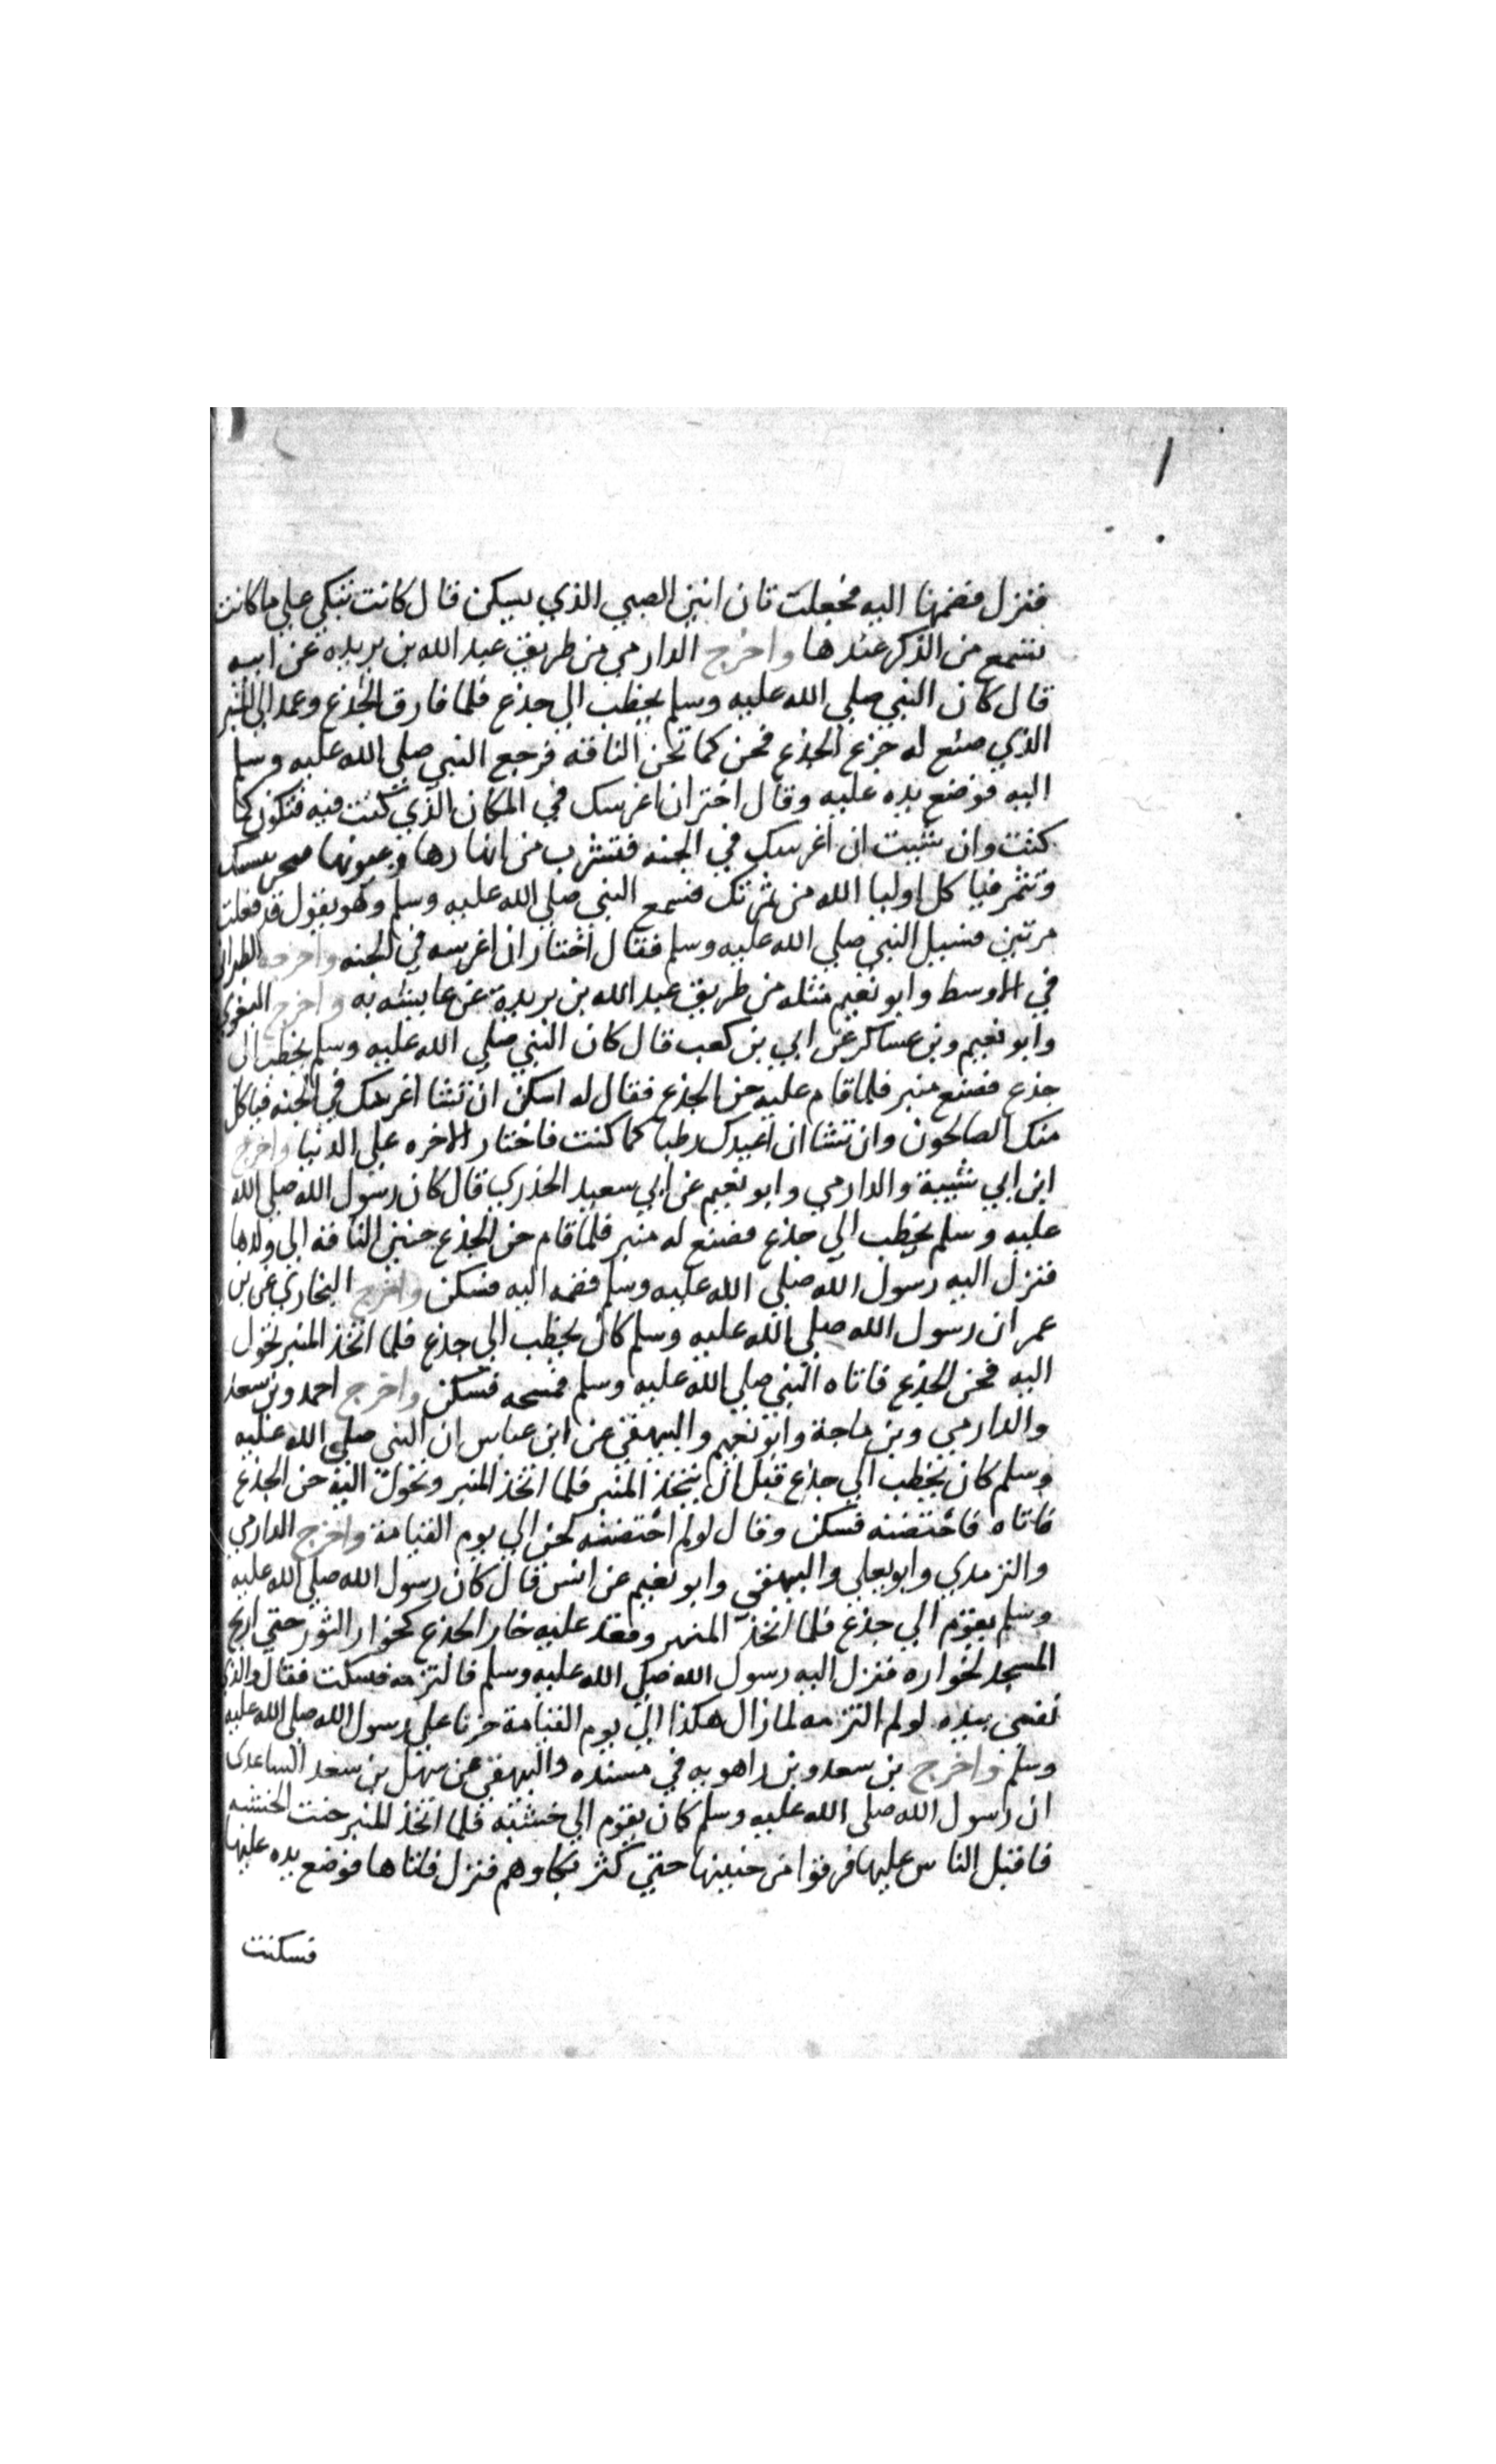 فنزل فضمها اليه فجعلت تان انين الصبي الذي يسكن قال كانت تبكي علي ما كانت
تسمع من الذكر عندها واخرج الدارمي من طريق عبد الله بن بريده عن ابيه
قال كان النبي صلي الله عليه وسلم يخطب الي جذع فلما فارق الجذع وعمد الي المنبر
الذي صنع له جزع الجذع فحن كما تحن الناقه فرجع النبي صلي الله عليه وسلم
اليه فوضع يده عليه وقال اختر ان اغرسك في المكان الذي كنت فيه فتكون كما
كنت وان شيت ان اغرسك في الجنه فتشرب من انهارها وعيونها
وتثمر فياكل اوليا الله من ثمرتك فسمع النبي صلي الله عليه وسلم وهو يقول قد فعلت
مرتين فسيل النبي صلي الله عليه وسلم فقال اختار ان اغرسه في الجنه واخرجه الطبراني
في الاوسط وابو نعيم مثله من طريق عبد الله بن بريدة عن عايشه به واخرج البغوي
وابو نعيم وبن عساكر عن ابي بن كعب قال كان النبي صلي الله عليه وسلم يخطب الي
جذع فصنع منبر فلما قام عليه حن الجذع فقال له اسكن ان تشا اغرسك في الجنه فياكل
منك الصالحون وان تشا ان اعيدك رطبا كما كنت فاختار الاخره علي الدنيا واخرج
ابن ابي شيبة والدارمي وابو نعيم عن ابي سعيد الخدري قال كان رسول الله صلي الله
عليه وسلم يخطب الي جذع فصنع له منبر فلما قام حن الجذع حنين الناقه الي ولدها
فنزل اليه رسول الله صلي الله عليه وسلم فضمه اليه فسكن واخرج البخاري عن بن
عمر ان رسول الله صلي الله عليه وسلم كان يخطب الي جذع فلما اتخذ المنبر تحول
اليه فحن الجذع فاتاه النبي صلي الله عليه وسلم فمسحه فسكن واخرج احمد وبن سعد
والدارمي وبن ماجة وابو نعيم والبيهقي عن ابن عباس ان النبي صلي الله عليه
وسلم كان يخطب الي جذع قبل ان يتخذ المنبر فلما اتخذ المنبر وتحول اليه حن الجذع
فاتاه فاحتضنه فسكن وقال لولم احتضنه لحن الي يوم القيامة واخرج الدارمي
والترمدي وابو يعلي والبيهقي وابو نعيم عن انس قال كان رسول الله صلي الله عليه
وسلم يقوم الي جذع فلما اتخذ المنبر وقعد عليه خار الجذع كخوار الثور حتي ارتج
المسجد لخواره فنزل اليه رسول الله صلي الله عليه وسلم فالتزمه فسكت فقال والذي
نفسي بيده لولم التزمه لما زال هكذا الي يوم القيامة حزنا علي رسول الله صلي الله عليه
وسلم واخرج بن سعد وبن راهويه في مسنده والبيهقي عن سهل بن سعد الساعدي
ان رسول الله صلي الله عليه وسلم كان يقوم الي خشبه فلما اتخذ المنبر حنت الخشبه
فاقبل الناس عليها فرقوا من حنينها حتي كثر بكاوهم فنزل فاتاها فوضع يده عليها
فسكنت